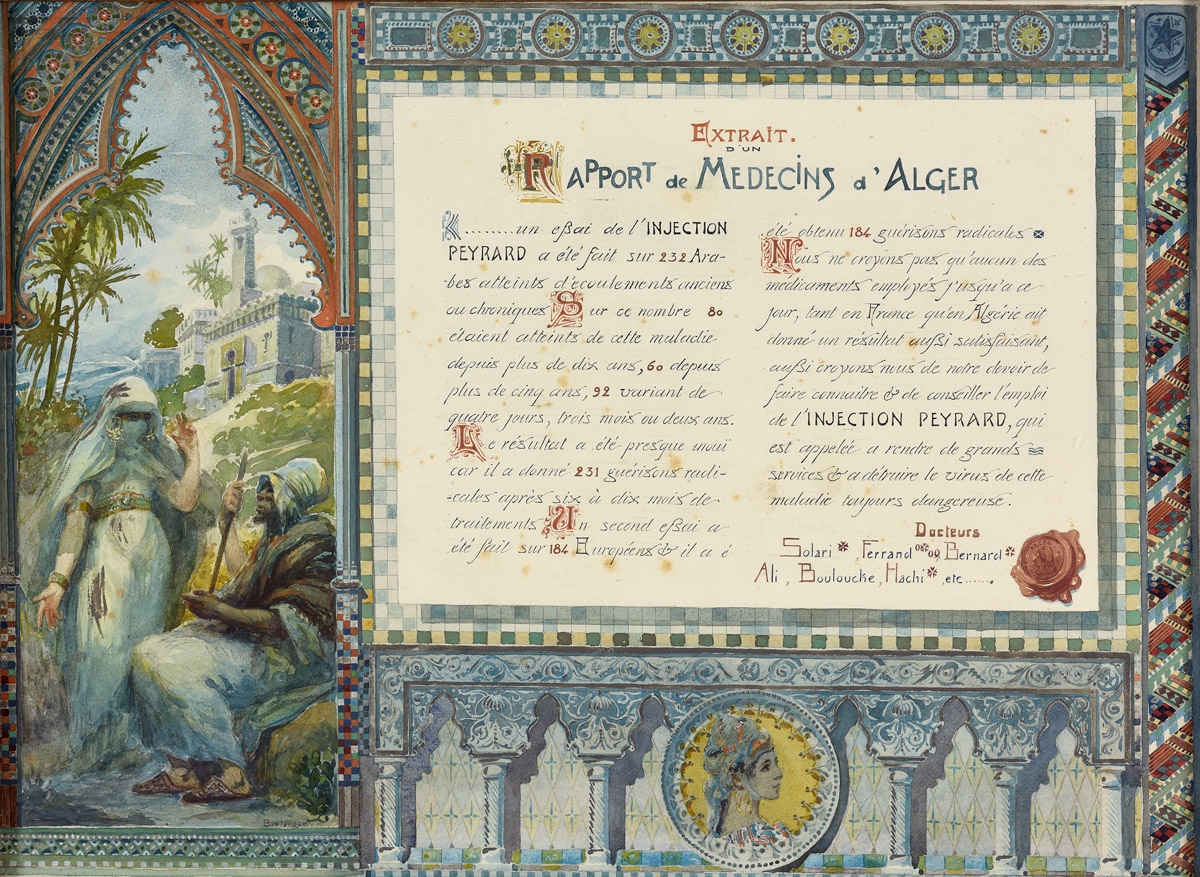 EXTRAIT.
D'UN
RAPPORT de MEDECINS d'ALGER
........un eßai de l'INJECTION
PEYRARD a été fait sur 232 Ara-
bes atteints d'écoulements anciens
ou chroniques Sur ce nombre 80
étaient atteints de cette maladie
depuis plus de dix ans, 60 depuis
plus de cinq ans, 92 variant de
quatre jours, trois mois ou deux ans.
Le résultat a été presque inouï
car il a donné 231 guérisons radi-
-cales après six à dix mois de
traitements Un second eßai a
été fait sur 184 Européens & il a é
été obtenu 184 guérisons radicales
Nous ne croyons pas qu'aucun des
médicaments employés jusqu'a ce
jour, tant en France qu'en Algérie ait
donné un résultat außi satisfaisant,
außi croyons nous de notre devoir de
faire connaitre & de conseiller l'emploi
de l'INJECTION PEYRARD, qui
est appelée a rendre de grands
services & a détruire le virus de cette
maladie toujours dangereuse.
Docteurs
Solari Ferrand Bernard
Ali, Bouloucke, Hachi ,etc......